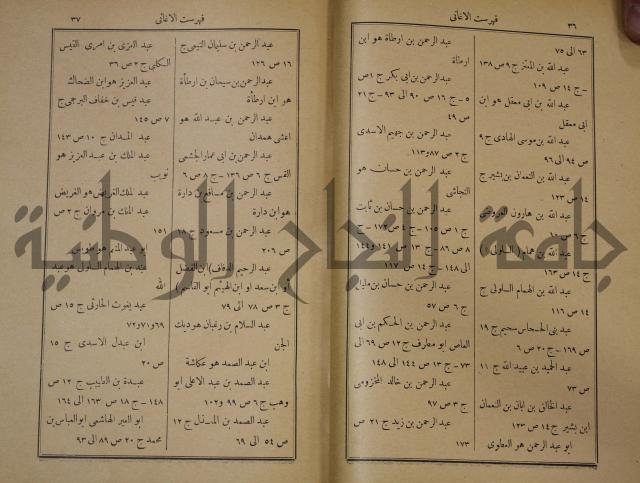 ٣٦
فهرست الاغانى
٦٣ الى ٧٥
عبد الله بن المعتز ج ٩ ص ١٣٨
- ج ١٤ ص ١٠٩
عبد الله بن ابى معقل هو ابن
ابى معقل
عبد الله بن موسى الهادى ج ٩
ص ٩٤ الى ٩٦
عبد الله بن النعمان بن بشير ج
١٤ ص ١٢٣
عبد الله بن هارون العروضى
ج ٦ ص ١٠
عبد الله بن همام (السلولى)
ج ١٤ ص ١٦٣
عبد الله بن الهمام السلولى ج
١٤ ص ١١٦
عبد بنى الحسحاس سحيم ج ١٩
ص ١٦٩ - ج ٢٠ ص ٦
عبد الحميد بن عبيد الله ج ١١
ص ٧٣
عبد الخالق بن ابان بن النعمان
ابن بشير ج ١٤ ص ١٢٣
ابو عبد الرحمن هو العطوى
عبد الرحمن بن ارطاة هو ابن
ارطاة
عبد الرحمن بن ابى بكر ج ١ ص
٥ - ج ١٦ ص ٩٠ الى ٩٣ - ج ٢١
ص ٤٩
عبد الرحمن بن جهيم الاسدى
ج ٢ ص ٨٧ و ١١٣
عبد الرحمن بن حسان هو
النجاشى
عبد الرحمن بن حسان بن ثابت
ج ١ ص ١٠٥ - ج ٤ ص ١٧٢ - ج
٨ ص ٨٦ - ج ١٣ ص ١٤١ و ١٤٤
الى ١٤٨ - ج ١٤ ص ١١٧
عبد الرحمن بن حسان بن
ج ٦ ص ٥٧
عبد الرحمن بن الحكم بن ابى
العاص ابو مطرف ج ١٢ ص ٦٩ الى
٧٣ - ج ١٣ ص ١٤٤ الى ١٤٨
عبد الرحمن بن خالد المخزومى
ج ٣ ص ٩٧
عبد الرحمن بن زيد ج ٢١ ص
١٧٣
فهرست الاغانى
٣٧
عبد الرحمن بن سليمان التيمى ج
١٦ ص ١٢٦
عبد الرحمن بن سيحان بن ارطأة
هو ابن ارطأة
عبد الرحمن بن عبد الله هو
اعشى همدان
عبد الرحمن بن ابى عمار الجشمى
القس ج ٦ ص ١٣٦ - ج ٨ ص ٦
عبد الرحمن بن مسافع بن دارة
هو ابن دارة
عبد الرحمن بن مسعود ج ١٨
ص ٢٠٦
عبد الرحيم (الدفاف) ابن الفضل
أو ابن سعد او ابن الهيثم أبو القاسم)
ج ٣ ص ٧٨ الى ٧٩
عبد السلام بن رغبان هو ديك
الجن
ابن عبد الصمد هو عكاشة
عبد الصمد بن عبد الاعلى ابو
وهب ج ٦ ص ٩٩ و ١٠٢
عبد الصمد بن المعذل ج ١٢
ص ٥٤ الى ٦٩
عبد العزى بن امرى القيس
الكلبى ج ٢ ص ٣٦
عبد العزيز هو ابن الضحاك
عبد قيس بن خفاف البرجمى ج
٧ ص ١٤٥
عبد المدان ج ١٠ ص ١٤٣
عبد الملك بن عبد العزيز هو
تويب
عبد الملك الغريض هو الغريض
عبد الملك بن مروان ج ٢ ص
١٥١
ابو عبد المنعم هو طويس
عبد بن الهمام السلولى هو عبد
الله
عبد يغوث الحارثى ج ١٥ ص
٦٩ و ٧١ و ٧٢
ابن عبدل الاسدى ج ١٥
ص ٢٠
عبدة بن الطبيب ج ١٢ ص
١٤٨ - ج ١٨ ص ١٦٣ الى ١٦٤
ابو العبر الهاشمى ابو العباس بن
محمد ج ٢٠ ص ٨٩ الى ٩٣
جامعة النجاح الوطنية